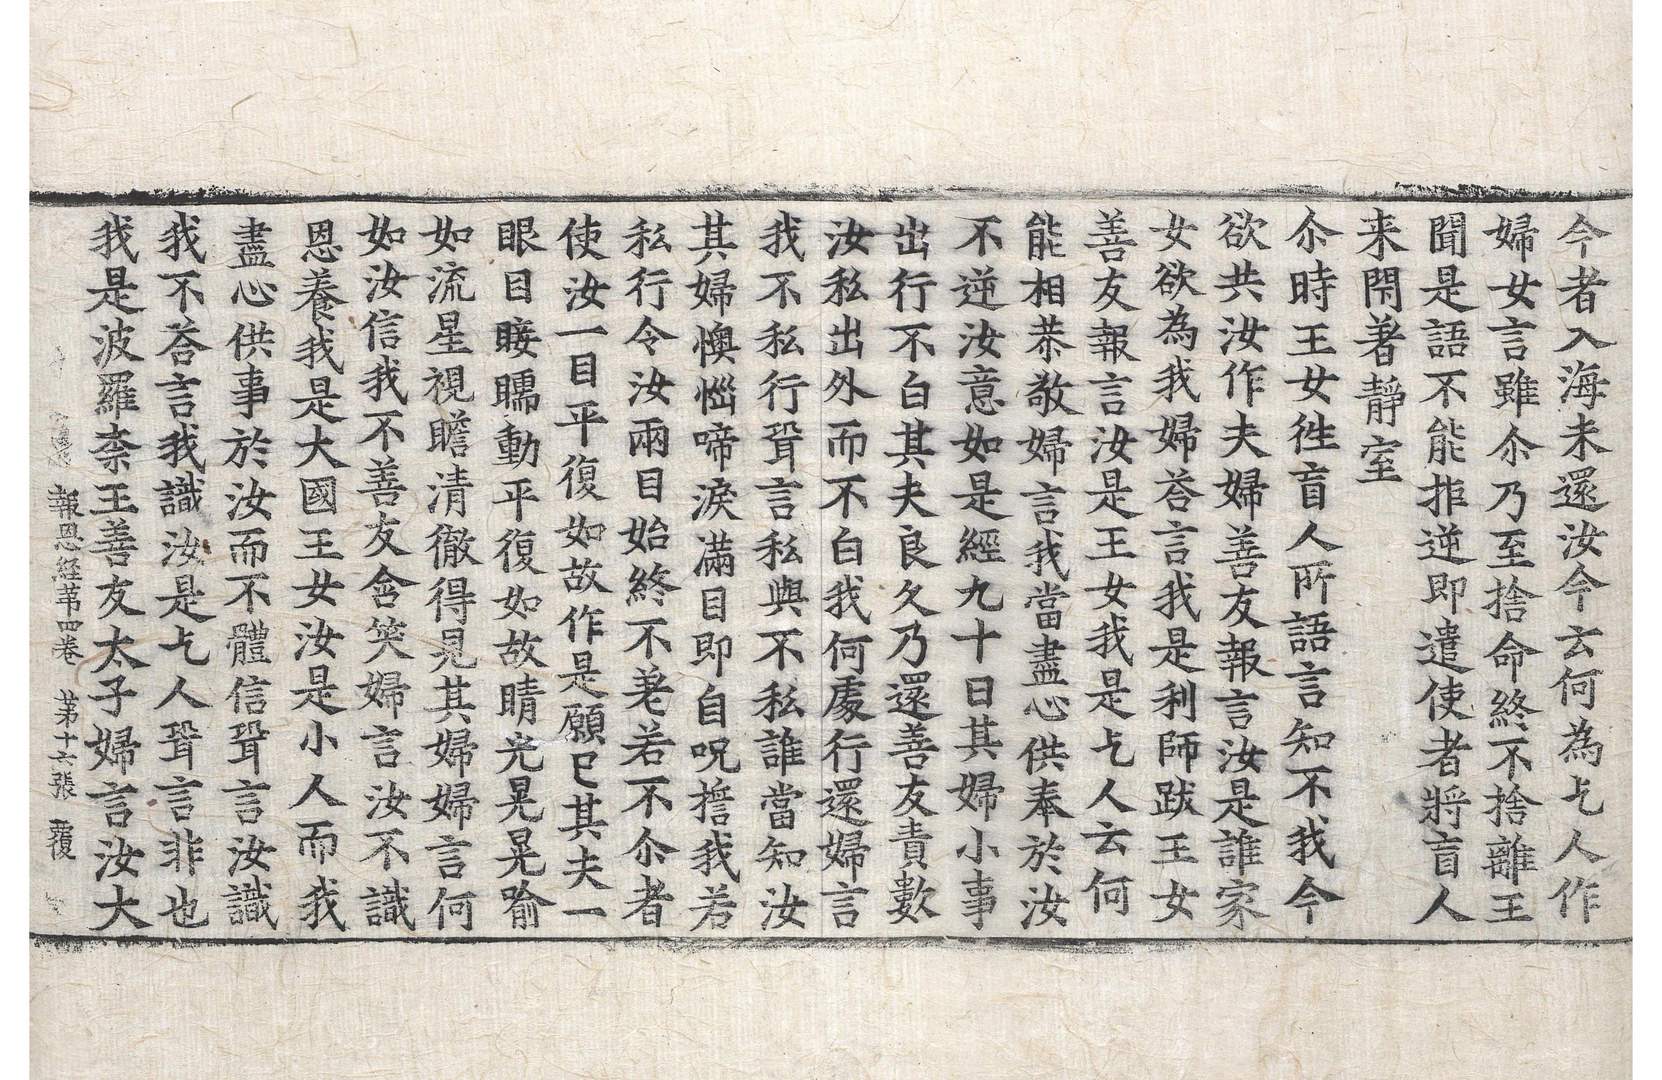 今者入海未還汝今云何為乞人作
婦女言雖尒乃至捨命終不捨離王
聞是語不能拒逆即遣使者將盲人
来閇著靜室
尒時王女徃盲人所語言知不我今
欲共汝作夫婦善友報言汝是誰家
女欲為我婦荅言我是利師跋王女
善友報言汝是王女我是乞人云何
能相恭敬婦言我當盡心供奉於汝
不逆汝意如是經九十日其婦小事
出行不白其夫良久乃還善友責數
汝私出外而不白我何處行還婦言
我不私行聟言私與不私誰當知汝
其婦懊惱啼淚滿目即自呪擔我若
私行令汝兩目始終不差若不尒者
使汝一目平復如故作是願已其夫一
眼目睫瞤動平復如故睛光晃晃喻
如流星視瞻清徹得見其婦婦言何
如汝信我不善友含笑婦言汝不識
恩養我是大國王女汝是小人而我
盡心供事於汝而不體信聟言汝識
我不荅言我識汝是乞人聟言非也
我是波羅柰王善友太子婦言汝大
報恩経苐四卷 苐十六張 覆